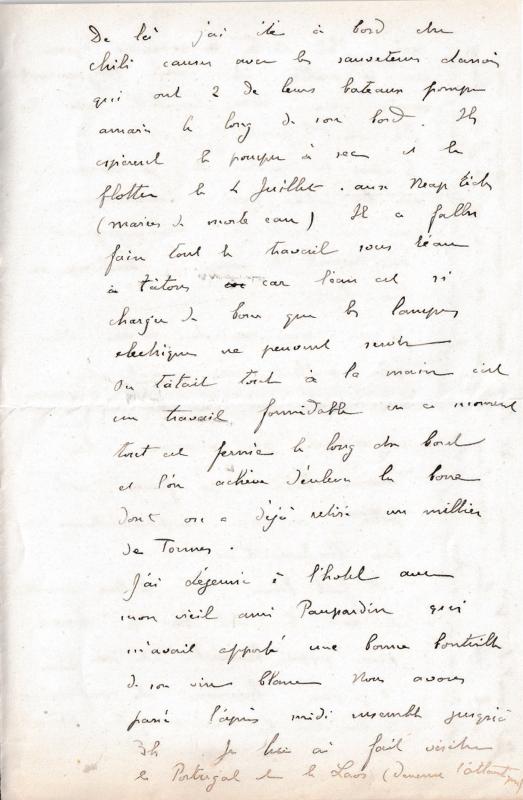 De là j'ai été à bord du
Chili causer avec les sauveteurs danois
qui ont 2 de leurs bateaux pompe
amarrés le long de son bord. Ils
espèrent le pomper à sec et le
flotter le 4 Juillet. aux Neap tides
(marées de morte eau) Il a fallu
faire tout le travail sous l'eau
à tâtons car l'eau est si
chargée de boue que les lampes
electriques ne peuvent servir
On tâtait tout à la main c'est
un travail formidable en ce moment
tout est fermé le long du bord
et l'on achève d'enlever la boue
dont on a déjà retiré un millier
de Tonnes.
J'ai déjeuné à l'hotel avec
mon vieil ami Paupardin qui
m'avait apporté une bonne bouteille
de son vin blanc Nous avons
passé l'après midi ensemble jusqu'à
3h Je lui ai fait visiter
le Portugal et le Laos (devenu l'atlantique)